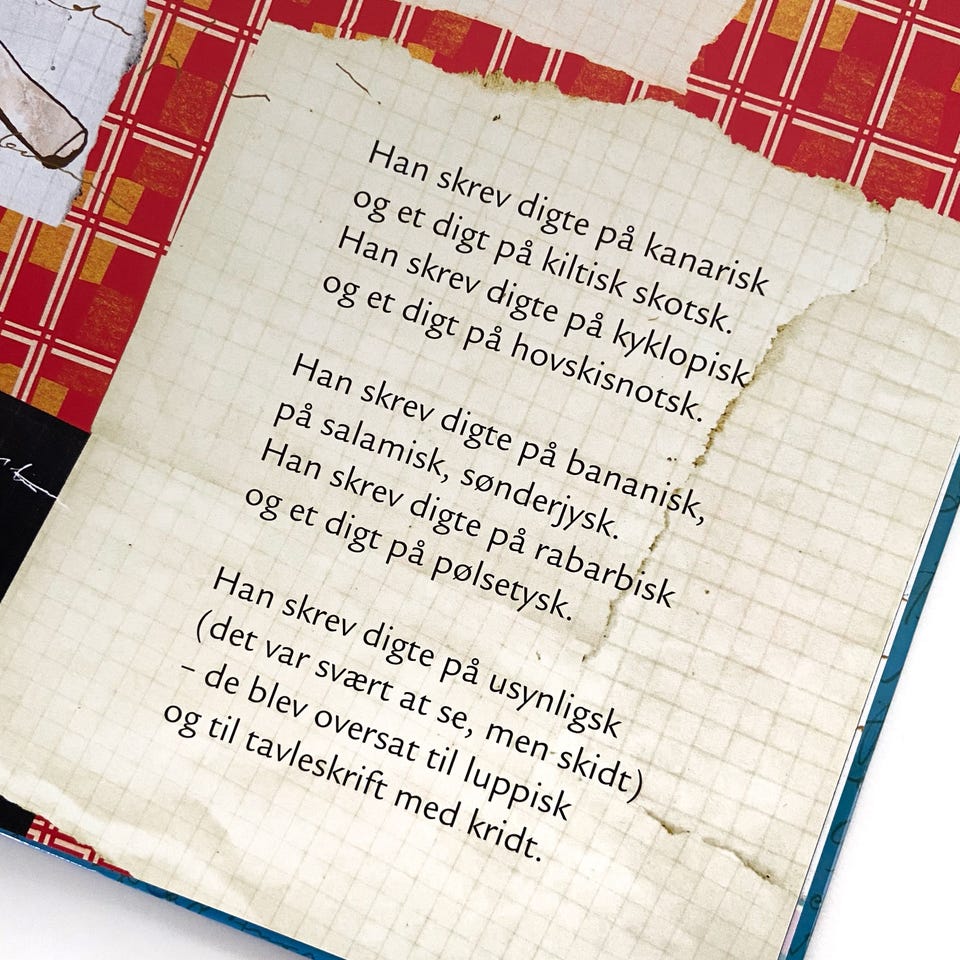 Han skrev digte på kanarisk
og et digt på kiltisk skotsk.
Han skrev digte på kyklopisk
og et digt på hovskisnotsk.
Han skrev digte på bananisk,
på salamisk, sønderjysk.
Han skrev digte på rabarbisk
og et digt på pølsetysk.
Han skrev digte på usynligsk
(det var svært at se, men skidt)
– de blev oversat til luppisk
og til tavleskrift med kridt.